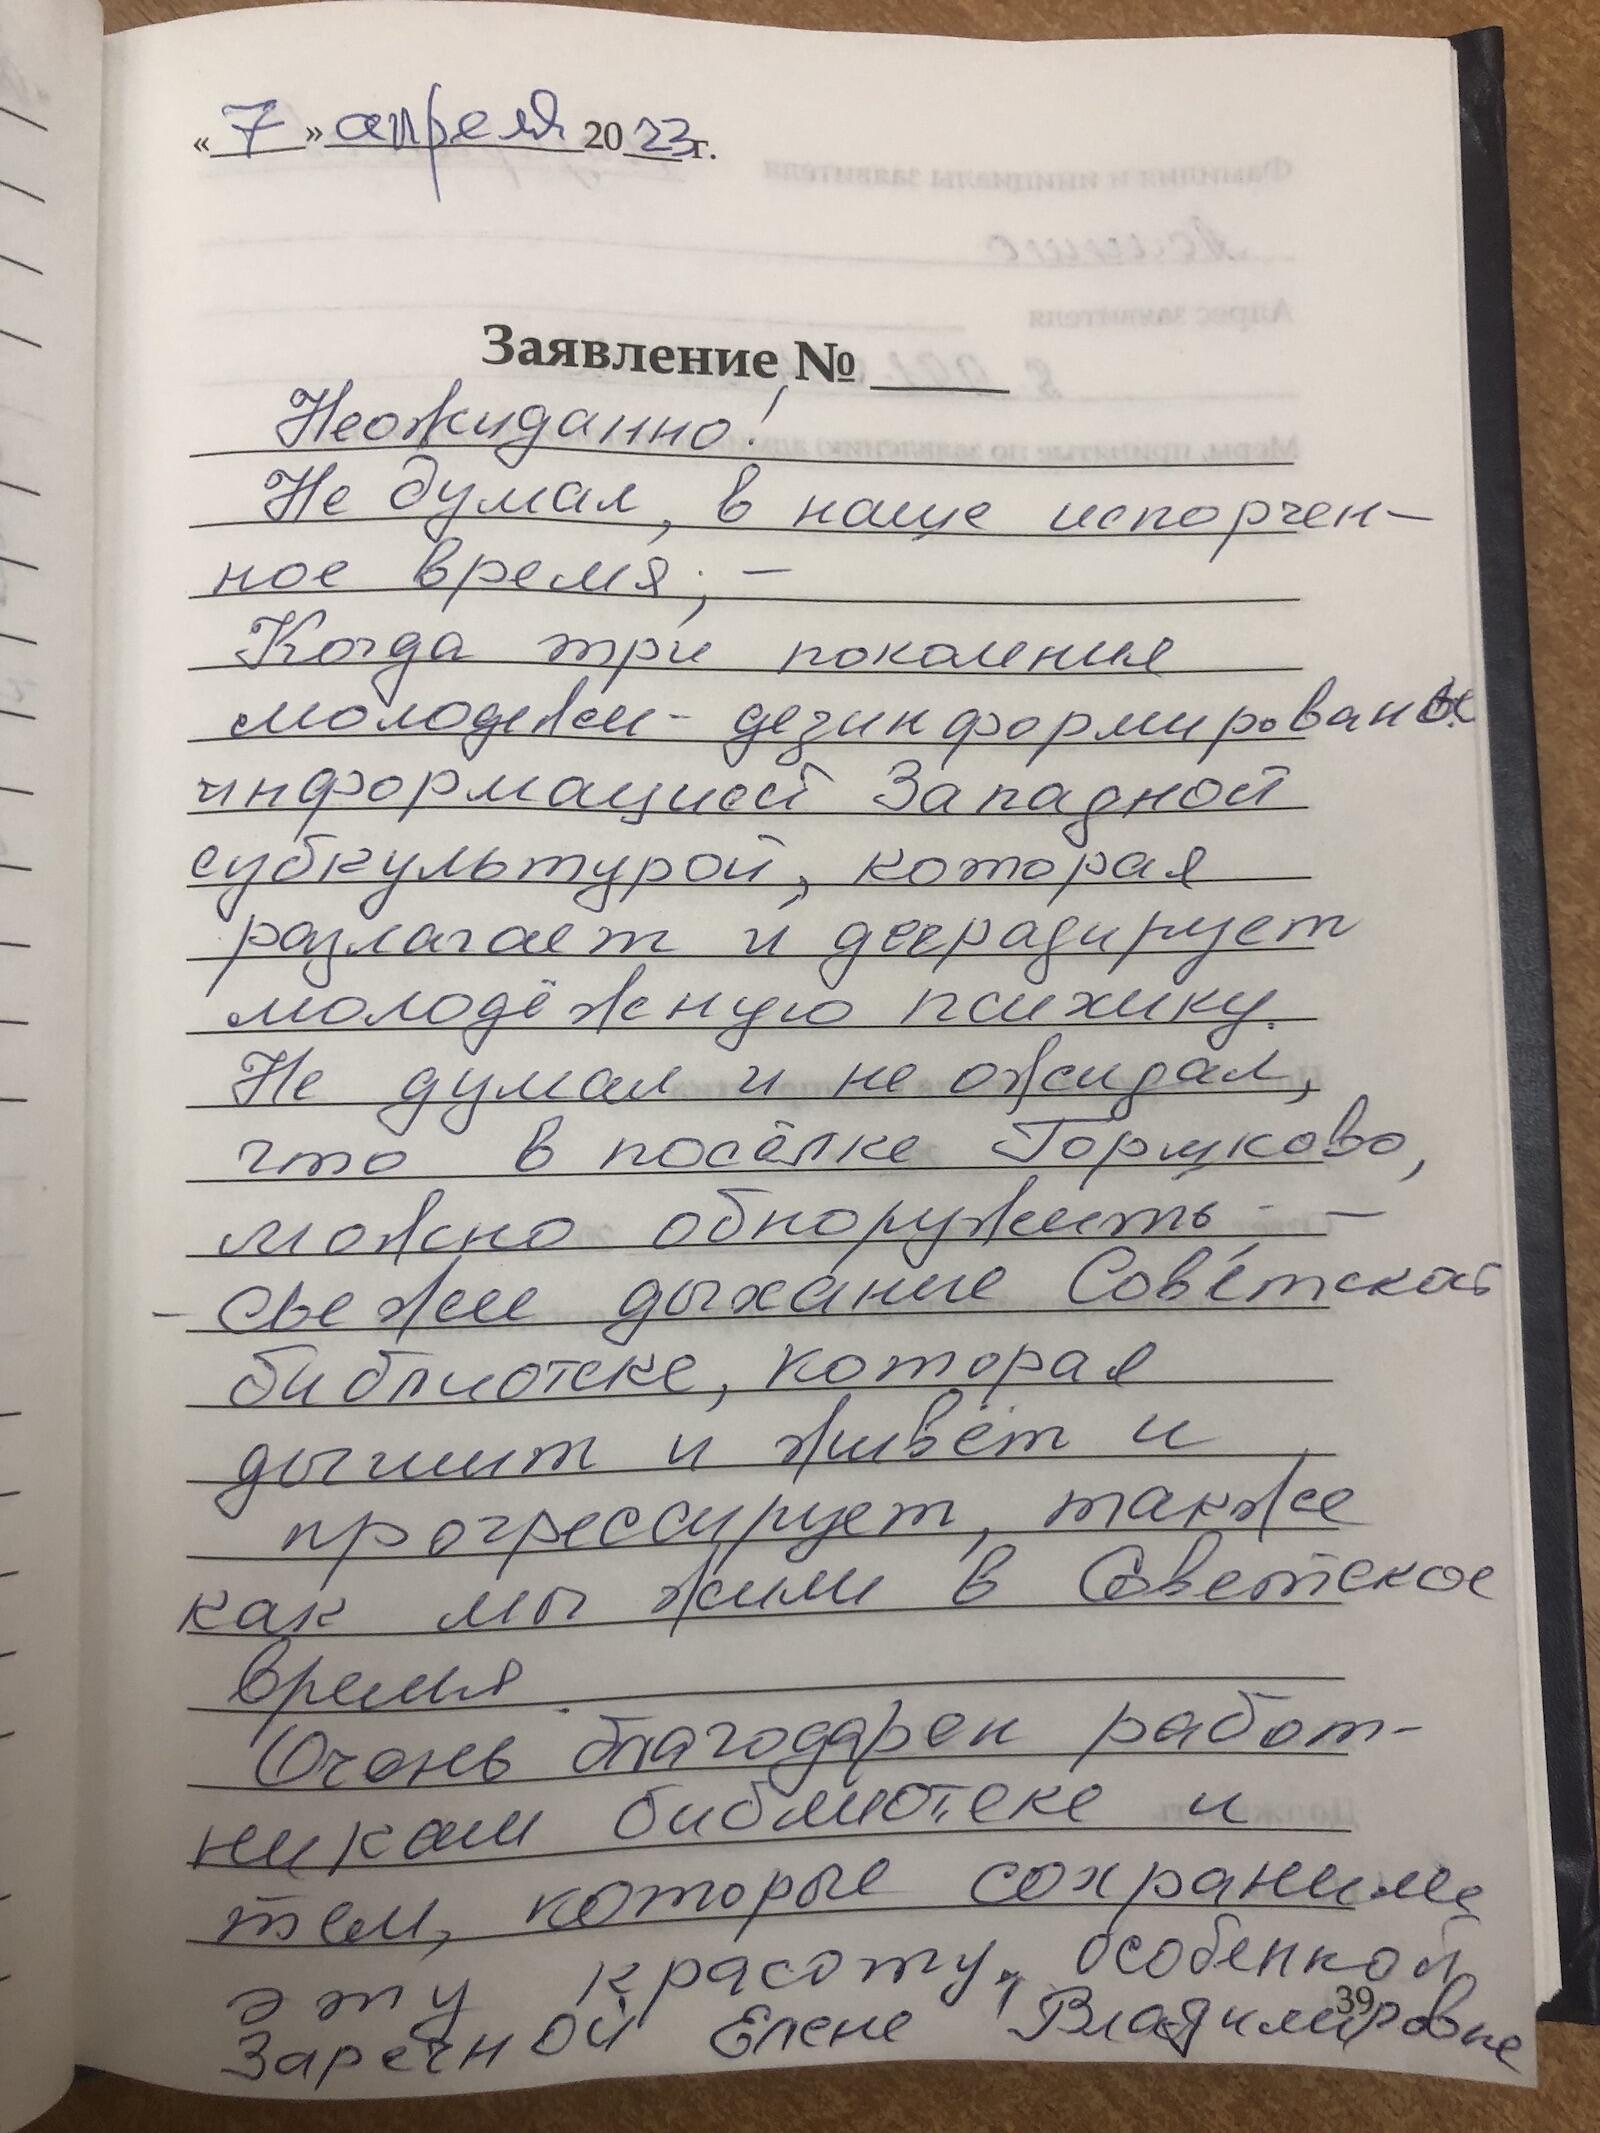 « 7 » апреля 20 23 г.
Заявление № ____
Неожиданно!
Не думал, в наше испорчен-
ное время, –
Когда три поколения
молодежи - дезинформированы
информацией Западной
субкультурой, которая
разлагает и деградирует
молодёжную психику.
Не думал и не ожидал,
что в посёлке Горшково,
можно обноружить -
- свежее дыхание Советской
библиотеке, которая
дышит и живёт и
прогрессирует, также
как мы жили в Советское
время.
Очень благодарен работ-
никам библиотеке и
тем, которые сохранили
эту красоту, особенной
39
Заречной Елене Владимировне